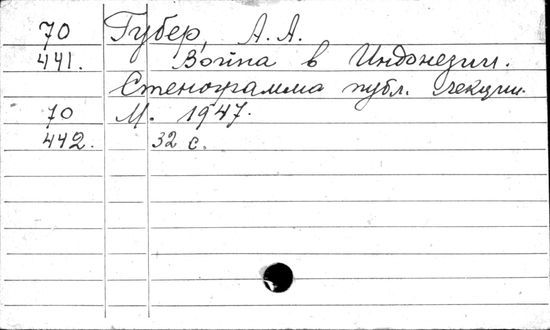 70 Губер, А. А.
441. Война в Индонезии.
Стенограмма публ. лекции.
70 М. 1947.
442. 32 с.